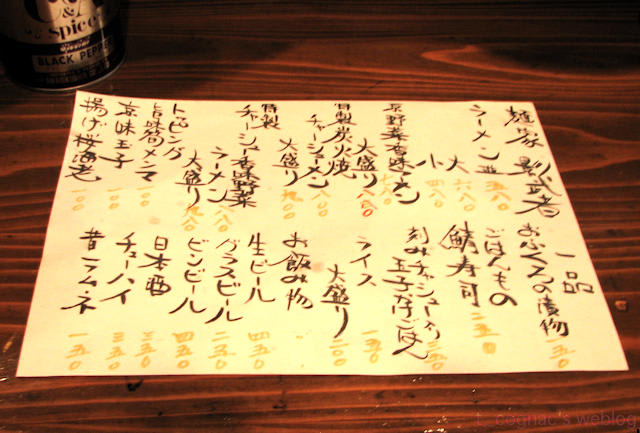 麺家 影武者
ラーメン 並 五八〇
大 六八〇
小 四八〇
京野菜香味ラーメン 七八〇
大盛り 八八〇
自製炭火焼
チャーシューメン 八〇〇
大盛り 九〇〇
特製
チャーシュー香味野菜
ラーメン 八八〇
大盛り 九八〇
トッピング
旨味筍メンマ 一〇〇
京味玉子 一〇〇
揚げ桜海老 一〇〇
一品
おふくろの漬物 一五〇
ごはんもの
鯖寿司 二五〇
刻みチャーシュー入り
玉子かけごはん
ライス 一五〇
大盛り 二〇〇
お飲み物
生ビール 四五〇
グラスビール 二五〇
ビンビール 四五〇
日本酒 三五〇
チューハイ 三五〇
昔ラムネ 一五〇
C&A
spice
Special
BLACK PEPPER
t. cognac's weblog